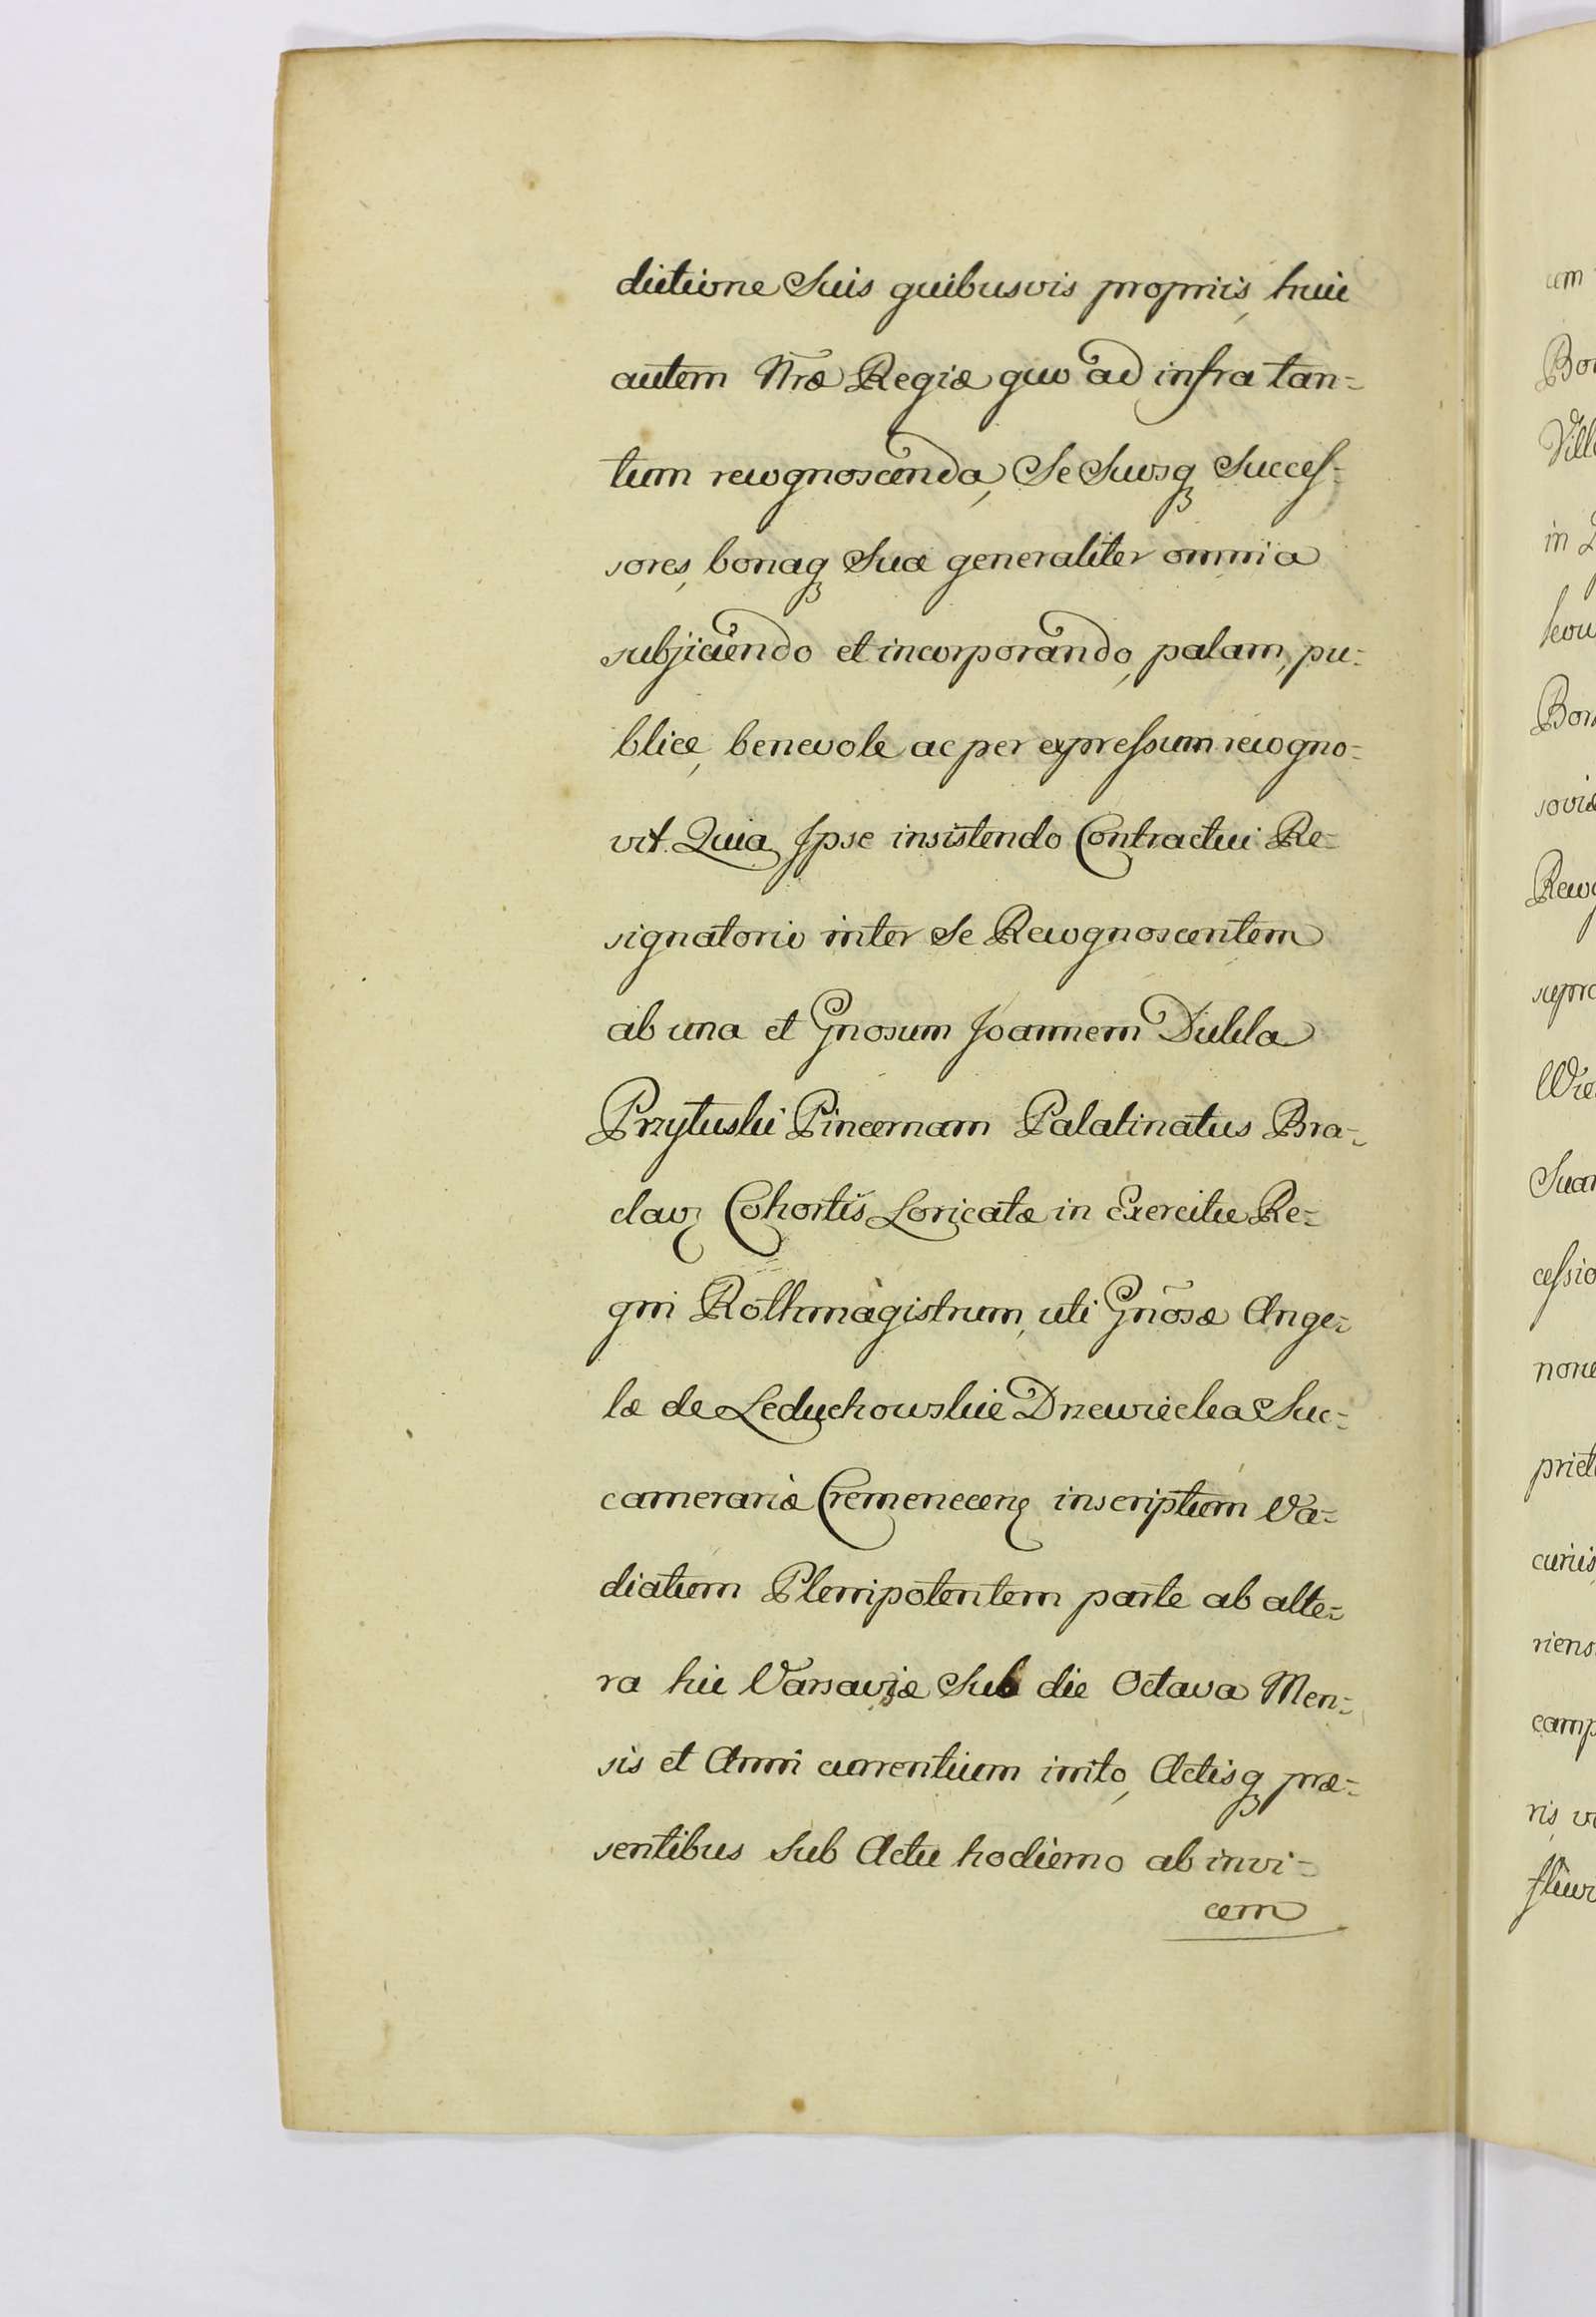 dictione Suis quibusvis propriis, huic
autem Nrae Regiae quo ad infra tan=
tum recognoscenda, Se Suosq Succes=
sores, bonaq Sua generaliter omnia
subjiciendo et incorporando, palam, pu=
blice, benevole ac per expressum recogno=
vit. Quia Ipse insistendo Contractui Re=
signatorio inter Se Recognoscentem
ab una et Gnosum Joannem Dukla
Przytuski Pincernam Palatinatus Bra=
clav Cohortis Loricatae in Exercitu Re=
gni Rothmagistrum, uti Gnosae Ange=
lae de Leduchowskie Drzewiecka Suc=
camerariae Cremenecen inscriptum Va=
diatum Plenipotentem parte ab alte=
ra hic Varsaviae Sub die Octava Men=
sis et Anni currentium inito, Actisq prae=
sentibus Sub Actu hodierno ab invi=
cem
em
Bon
Vill
in
kow
Bon
soviae
Reco
supra
Wie
Suar
cessio
none
priet
curiis
riens
camp
ris, v